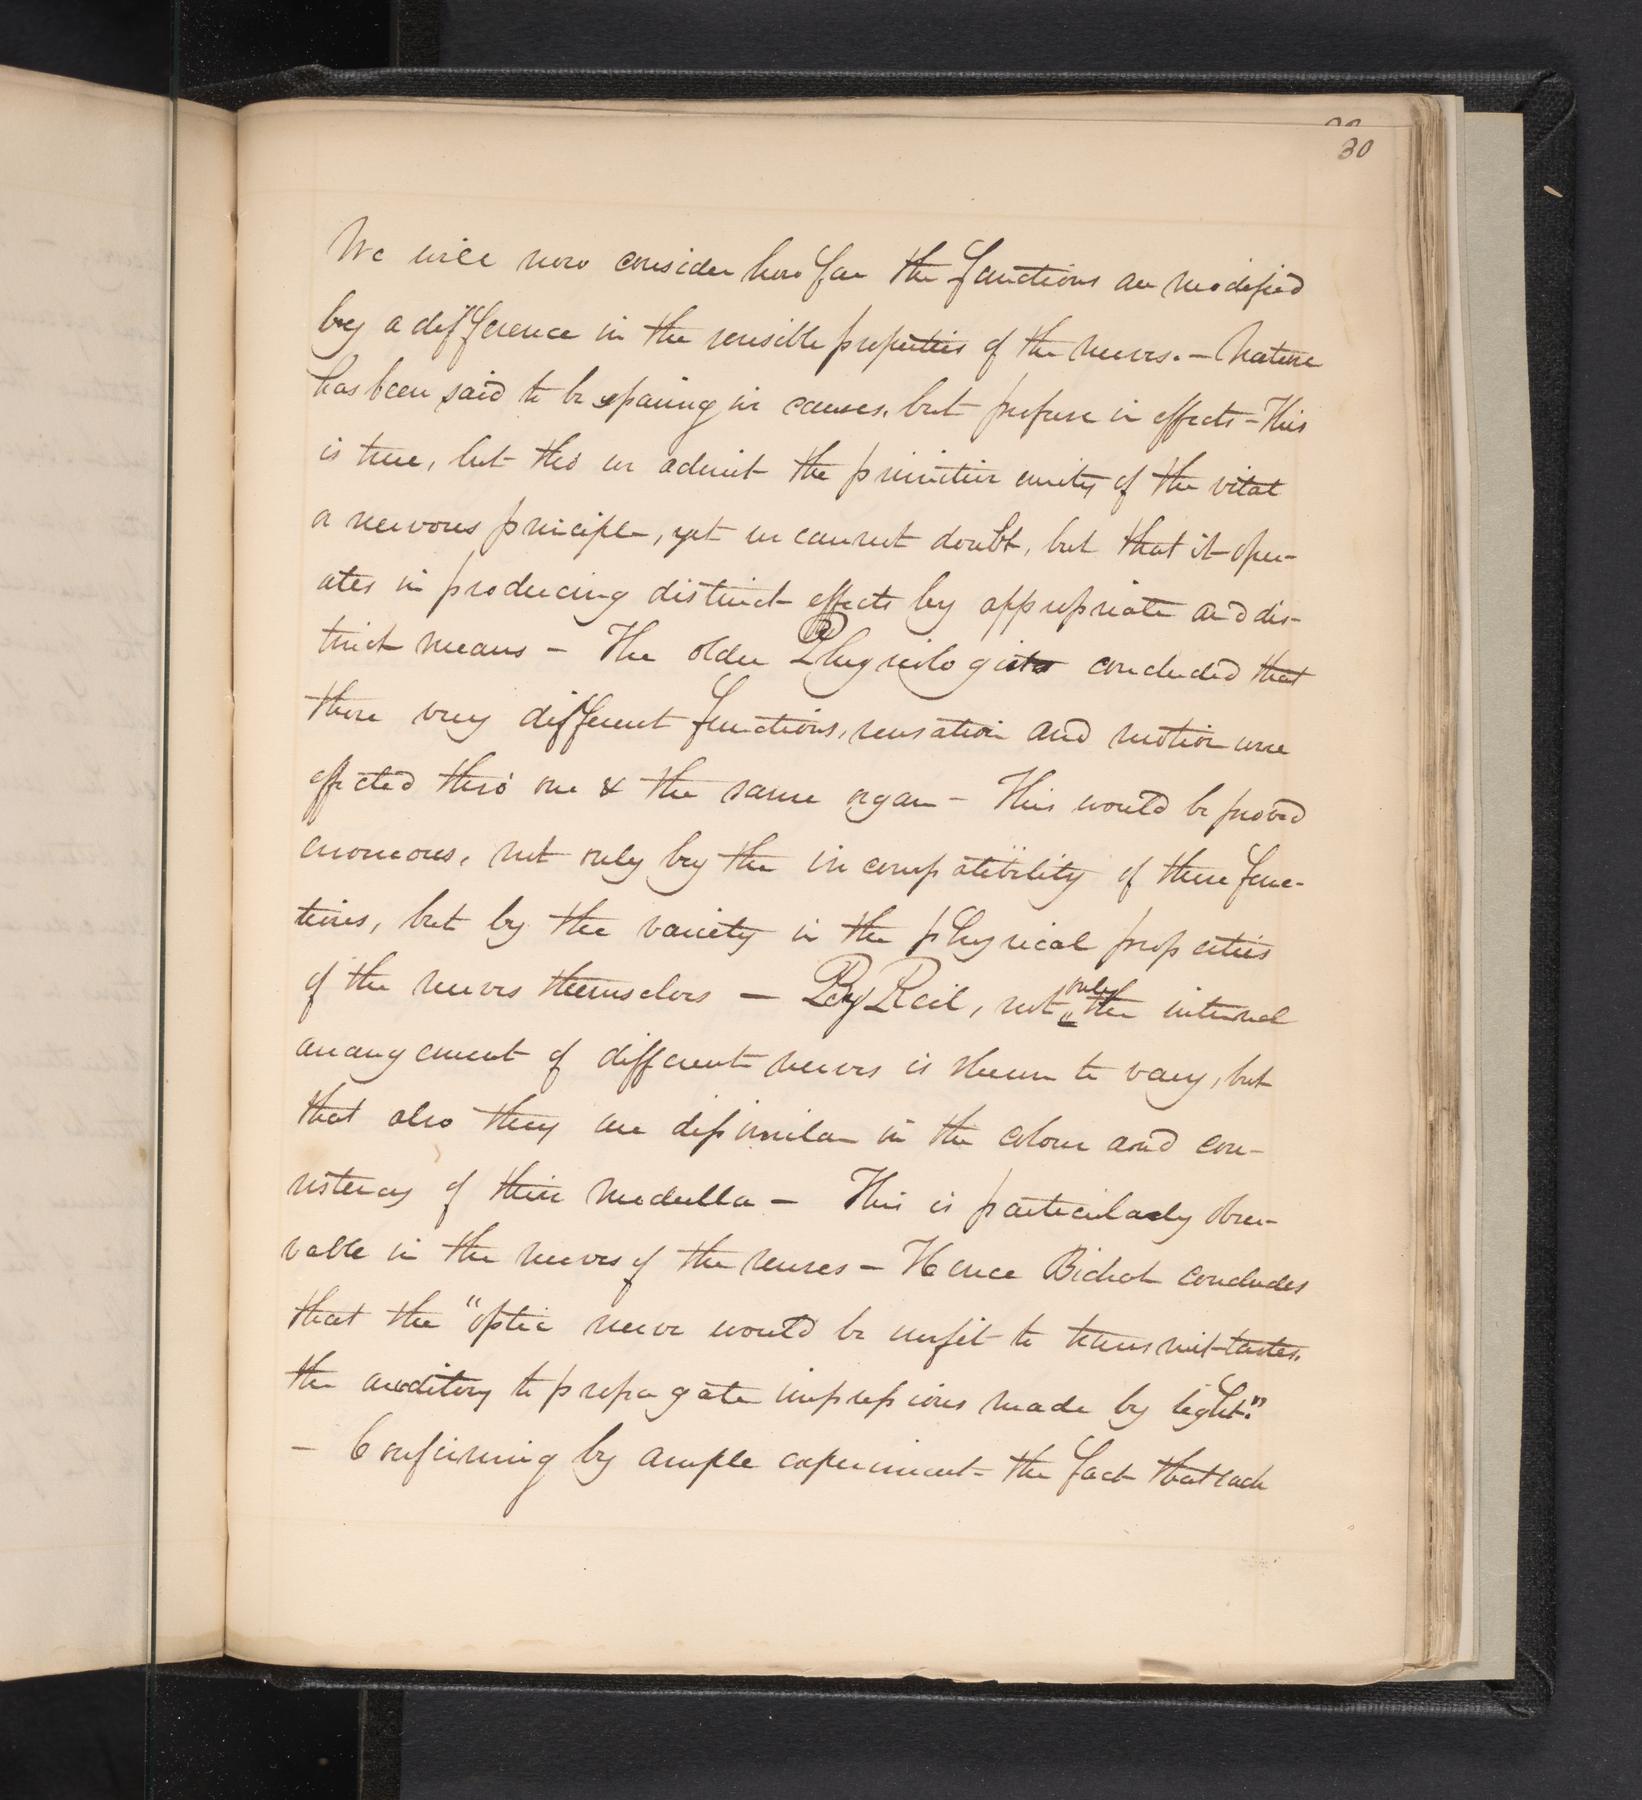 30
We will now consider how far the functions are modified
by a difference in the sensible properties of the nerves. – Nature
has been said to be sparing in causes, but profuse in effects – This
is true, but tho' we admit the primitive unity of the vital
or nervous principle, yet we cannot doubt, but that it oper-
ates in producing distinct effects by appropriate and dis-
tinct means – The older Physiologists concluded that
these very different functions, sensation and motion were
effected thro' one & the same organ – This would be proved
erroneous, not only by the incompatibility of these func-
tions, but by the variety in the physical properties
of the nerves themselves – By Reil, not only the internal
arrangement of different nerves is shewn to vary, but
that also they are dissimilar in the colour and con-
sistency of their medulla – This is particularly obser-
vable in the nerves of the senses – Hence Bichat concludes
that the "optic nerve would be unfit to transmit tastes,
the auditory to propagate impressions made by light."
– Confirming by ample experiment the fact that each